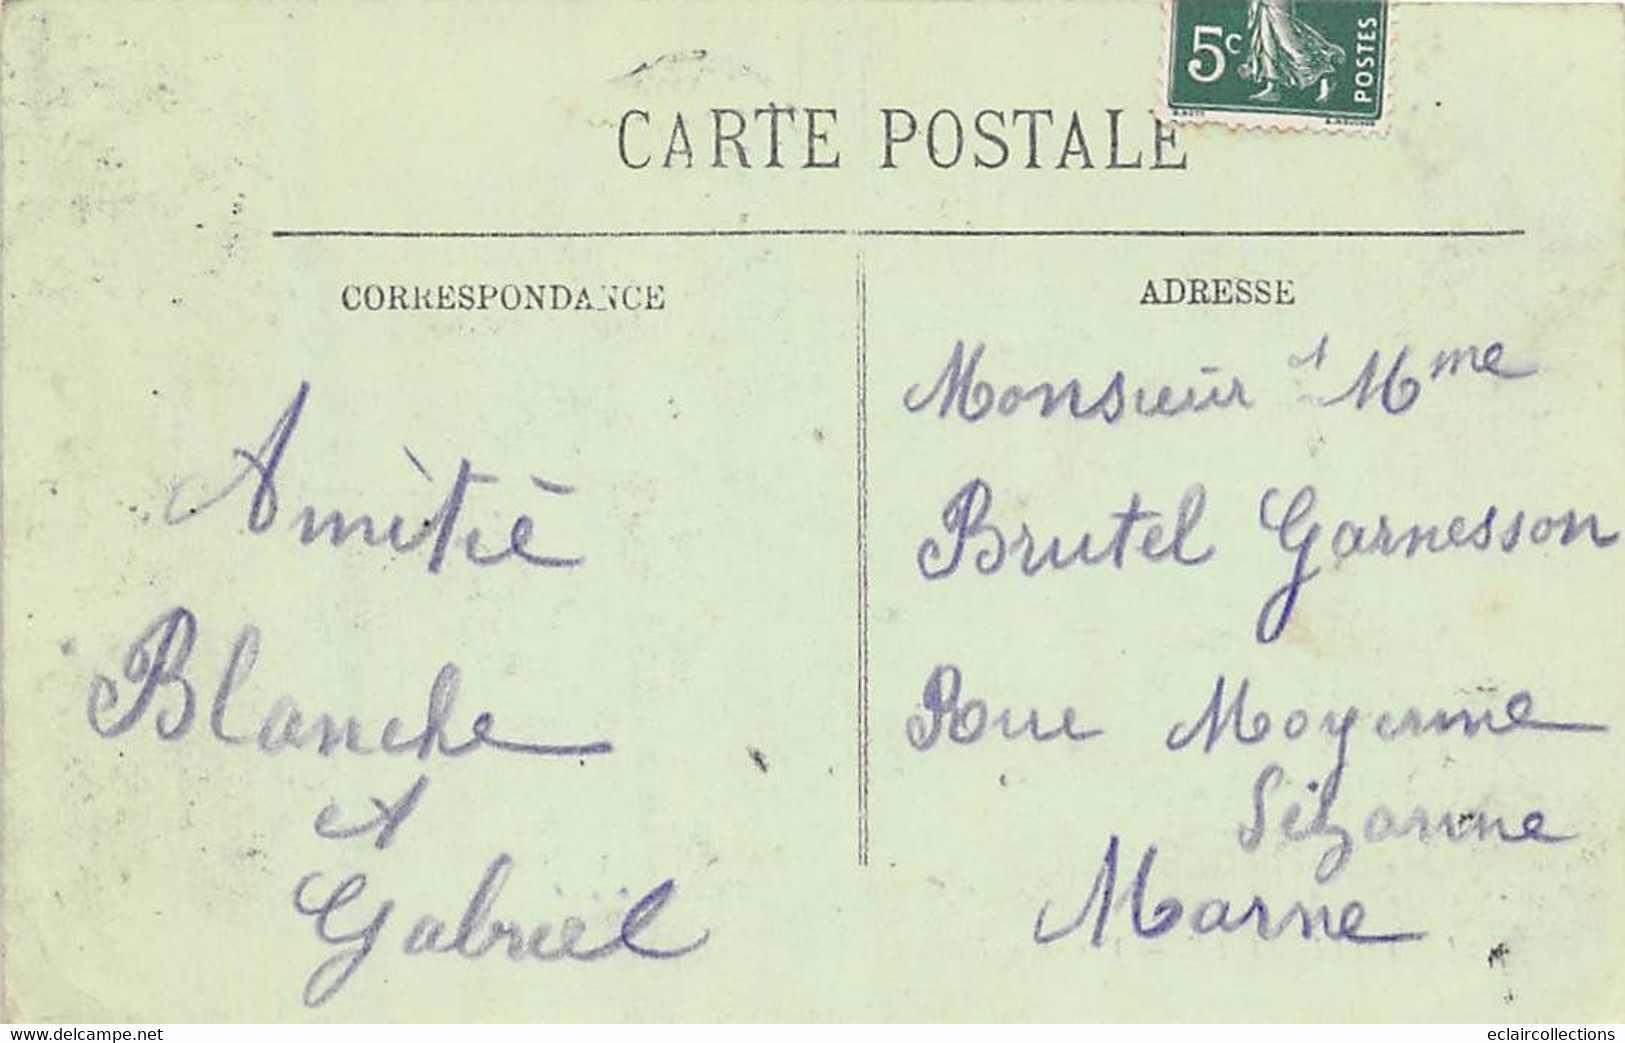 5c
POSTES
CARTE POSTALE
CORRESPONDANCE
ADRESSE
Amitié
Blanche
et
Gabriël
Monsieur et Mme
Brutel Garnesson
Rue Moyenne
Sézanne
Marne
www.delcampe.net
eclaircollections